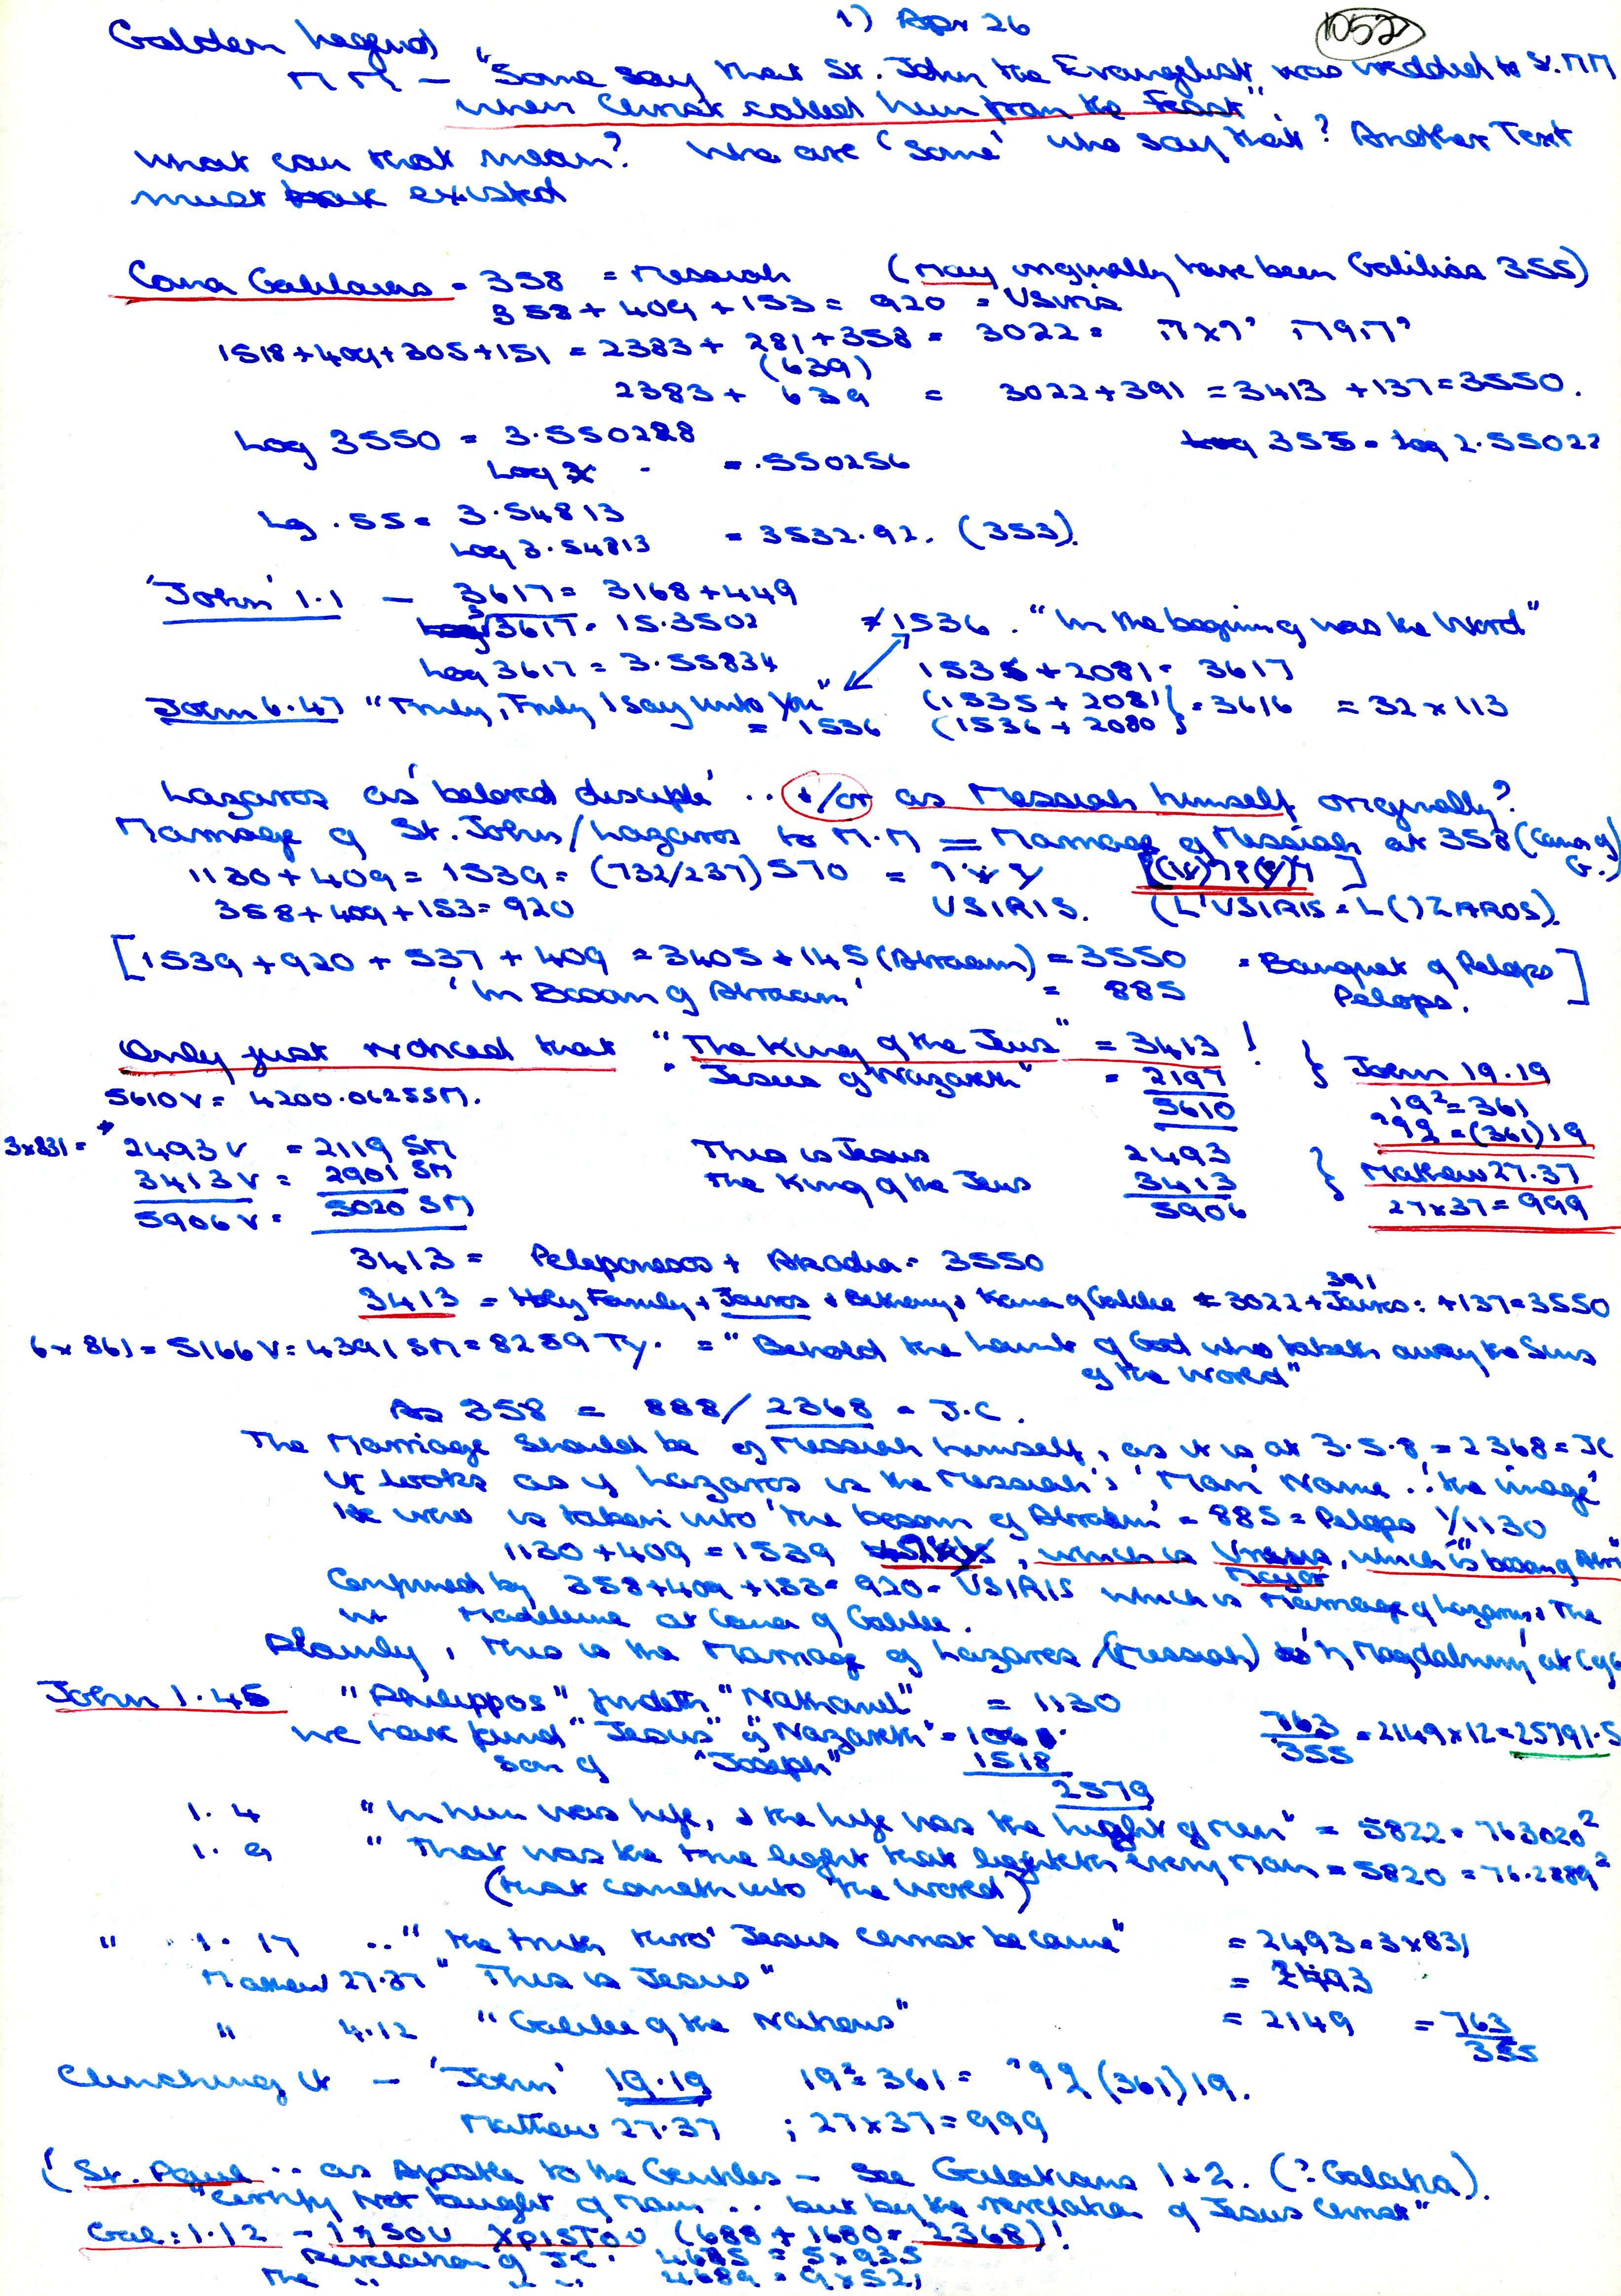 1) Apr 26
10527
Golden Legend
MM — "Some say that St. John the Evangelist was wedded to S. MM
when Christ called him from the Feast".
What can that mean? Who are 'some' who say that? Another Text
must have existed
Cana Galilaias = 358 = Messiah (May originally have been Galiliàs 355)
358 + 409 + 153 = 920 = USIRIS
1518 + 409 + 305 + 151 = 2383 + 281 + 358 = 3022 =
(639)
2383 + 639 = 3022 + 391 = 3413 + 137 = 3550.
Log 3550 = 3.550228 Log 355 = log 2.55022
Log 3 = .550256
Lg .55 = 3.54813
Log 3.54813 = 3532.92. (353).
'John' 1.1 — 3617 = 3168 + 449
∛3617 = 15.3502 ≠ 1536. "In the beginning was the Word"
Log 3617 = 3.55834 1536 + 2081 = 3617
John 6.47 "Truly, Truly I say unto you" (1535 + 2081) = 3616 = 32 x 113
= 1536 (1536 + 2080)
Lazaros as 'beloved disciple' .. +/or as Messiah himself originally?
Marriage of St. John/Lazaros to M.M = Marriage of Messiah at 358 (Cana of G.)
1130 + 409 = 1539 = (732/237) 570 =
358 + 409 + 153 = 920 USIRIS. (L'USIRIS = L( )ZAROS).
[1539 + 920 + 537 + 409 = 3405 + 145 (Abraam) = 3550 = Banquet of Pelops
'In Bosom of Abraam' = 885 Pelops.]
Only just noticed that "The King of the Jews" = 3413 ! } John 19.19
"Jesus of Nazareth" = 2197
5610V = 4200.0625SM. 5610 19² = 361
(361) 19
3x831 = 2493V = 2119 SM This is Jesus 2493 } Mathew 27.37
3413V = 2901 SM The King of the Jews 3413
5906V = 5020 SM 5906 27x37 = 999
3413 = Peloponesos + Arkadia = 3550
3413 = Holy Family + Jairos + Bethany + Kana of Galilee = 3022 + Jairos 391 : +137 = 3550
6 x 861 = 5166V = 4391 SM = 8259 Ty. = "Behold the Lamb of God who taketh away the Sins
of the World"
As 358 = 888/2368 = J.C.
The Marriage should be of Messiah himself, as it is at 3.5.8 = 2368 = JC
It looks as if Lazaros is the Messiah's 'Man' Name .. 'the image'
He who is taken into 'the bosom of Abraam' = 885 = Pelops 1/1130
1130 + 409 = 1539, which is Ursus Major, which is "bosom of Abr"
Confirmed by 358 + 409 + 153 = 920 = USIRIS which is Marriage of Lazaros, The
Madeleine at Cana of Galilee.
Plainly, this is the Marriage of Lazaros/(Messiah) to 'η Magdalhnη' at C of G
John 1.45 "Philippos" findeth "Nathanael" = 1130
We have found "Jesus" of "Nazareth" = 1061 763/355 = 2149 x 12 = 25791.5
Son of "Joseph" 1518
2579
1.4 "In him was life, & the life was the light of men" = 5822 = 763020²
1.9 "That was the true light that lighteth every man = 5820 = 76.2889²
(that cometh into the World)"
" 1.17 .. "the truth thro' Jesus Christ became" = 2493 = 3x831
Mathew 27.37 "This is Jesus" = 2493
" 4.12 "Galilee of the Nations" = 2149 = 763/355
Clinching it — 'John' 19.19 19² = 361 = (361) 19.
Matthew 27.37 ; 27x37 = 999
(St. Paul .. as Apostle to the Gentiles — See Galatians 1+2. (? Galatia).
"Certify not taught of man .. but by the revelation of Jesus Christ"
Gal: 1.12 — Iησου Χριστου (688 + 1680 = 2368)!
Revelation of J.C. 4675 = 5x935
The " " " 4689 = 9x521